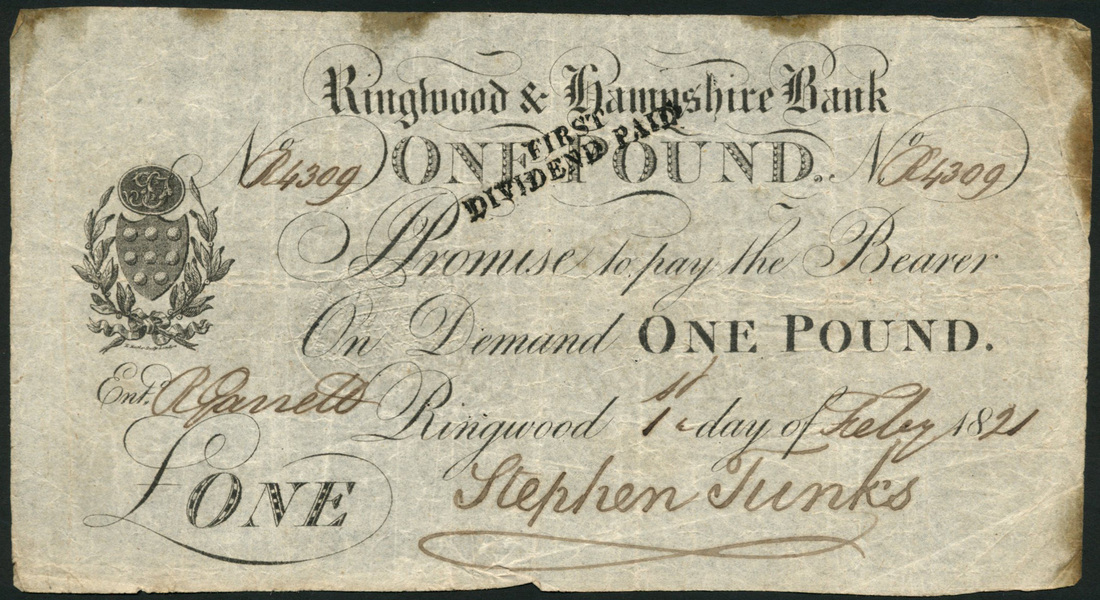 Ringwood & Hampshire Bank
No R4309 ONE POUND. No R4309
FIRST
DIVIDEND PAID
I Promise to pay the Bearer
On Demand ONE POUND.
Entd. R Garrett Ringwood 1st day of Feby 1821
£ONE Stephen Tunks